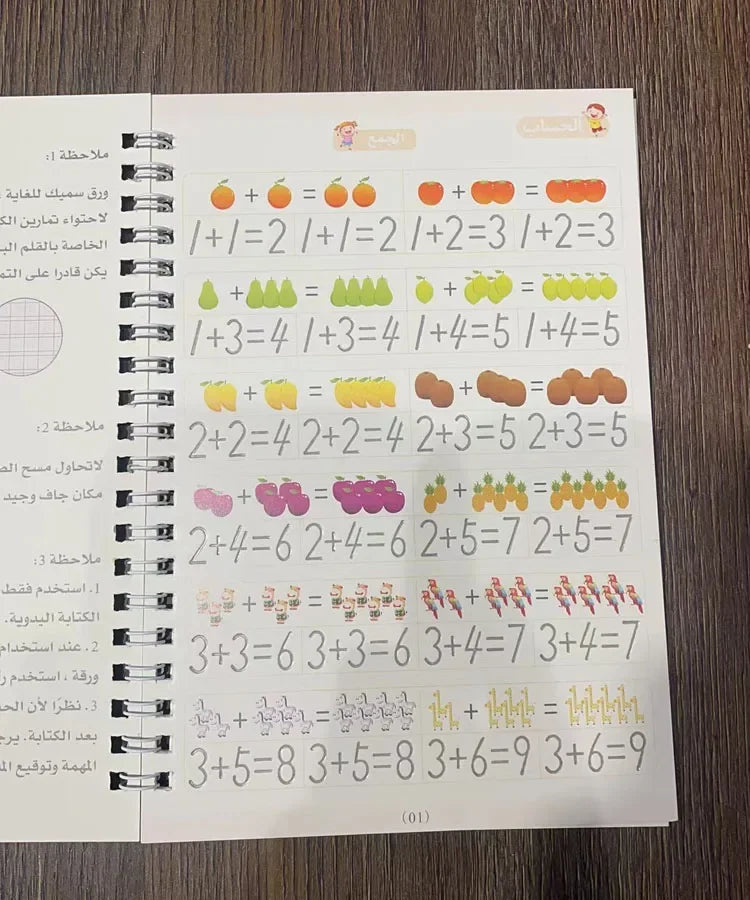 الحساب الجمع
+ = + =
1+1=2 1+1=2 1+2=3 1+2=3
+ = + =
1+3=4 1+3=4 1+4=5 1+4=5
+ = + =
2+2=4 2+2=4 2+3=5 2+3=5
+ = + =
2+4=6 2+4=6 2+5=7 2+5=7
+ = + =
3+3=6 3+3=6 3+4=7 3+4=7
+ = + =
3+5=8 3+5=8 3+6=9 3+6=9
(01)
ملاحظة 1:
ورق سميك للغاية
لاحتواء تمارين
الخاصة بالقلم
يكن قادرا على
ملاحظة 2:
لاتحاول مسح
مكان جاف وجيد
ملاحظة 3:
1. استخدم فقط
الكتابة اليدوية.
2. عند استخدام
ورقة ، استخدم
3. نظرًا لأن
بعد الكتابة.
المهمة وتوقيع